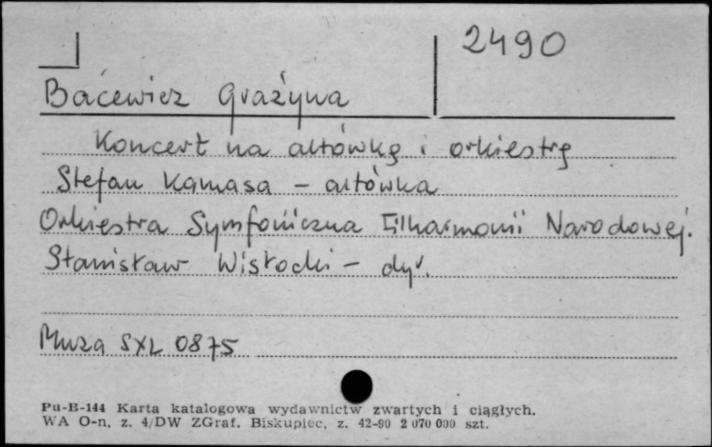 2490
Bacewicz Grażyna
Koncert na altówkę i orkiestrę
Stefan Kamasa – altówka
Orkiestra Symfoniczna Filharmonii Narodowej.
Stanisław Wisłocki – dyr.
Muza SXL 0875
Pu-B-144 Karta katalogowa wydawnictw zwartych i ciągłych.
WA O-n, z. 4/DW ZGraf. Biskupiec, z. 42-90 2 070 000 szt.